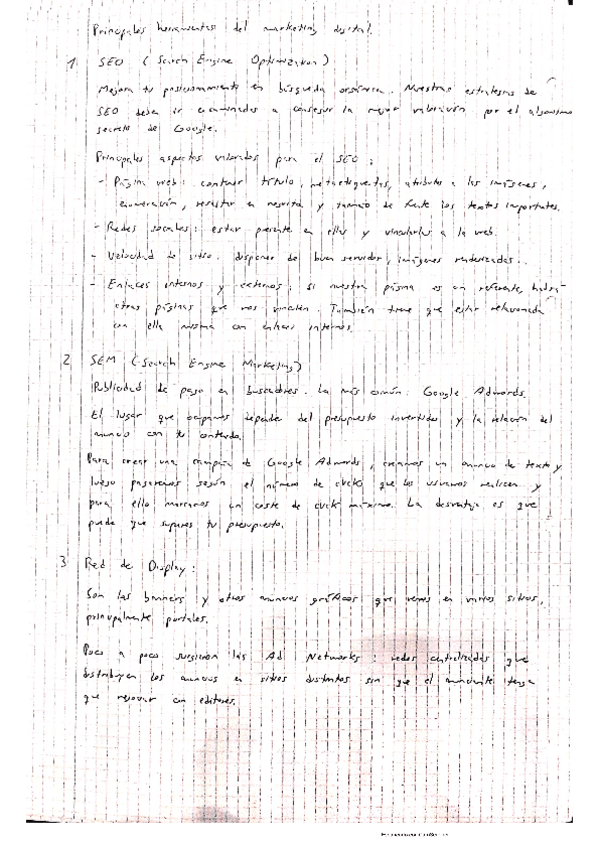 Principales herramientas del marketing digital.
1. SEO (Search Engine Optimization)
Mejora tu posicionamiento en búsqueda orgánica. Nuestras estrategias de
SEO deben ir encaminadas a conseguir la mejor valoración por el algoritmo
secreto de Google.
Principales aspectos valorados para el SEO:
- Página web: contener título, metaetiquetas, atributos a las imágenes,
enumeración, resaltar en negrita y tamaño de fuente los textos importantes.
- Redes sociales: estar presente en ellas y vincularlas a la web.
- Velocidad de sitio: disponer de buen servidor, imágenes renderizadas...
- Enlaces internos y externos: si nuestra página es un referente, habrá
otras páginas que nos vinculen. También tiene que estar relacionada
con ella misma con enlaces internos.
2 SEM (Search Engine Marketing)
Publicidad de pago en buscadores. La más común: Google Adwords.
El lugar que ocupamos depende del presupuesto invertido y la relación del
anuncio con tu contenido.
Para crear una campaña de Google Adwords, creamos un anuncio de texto y
luego pagaremos según el número de clicks que los usuarios realicen y
para ello marcamos un coste de click máximo. La desventaja es que
puede que superes tu presupuesto.
3 Red de Display:
Son los banners y otros anuncios gráficos que vemos en varios sitios,
principalmente portales.
Poco a poco surgieron las Ad Networks: redes centralizadas que
distribuyen los anuncios en sitios distintos sin que el anunciante tenga
que negociar con editores.